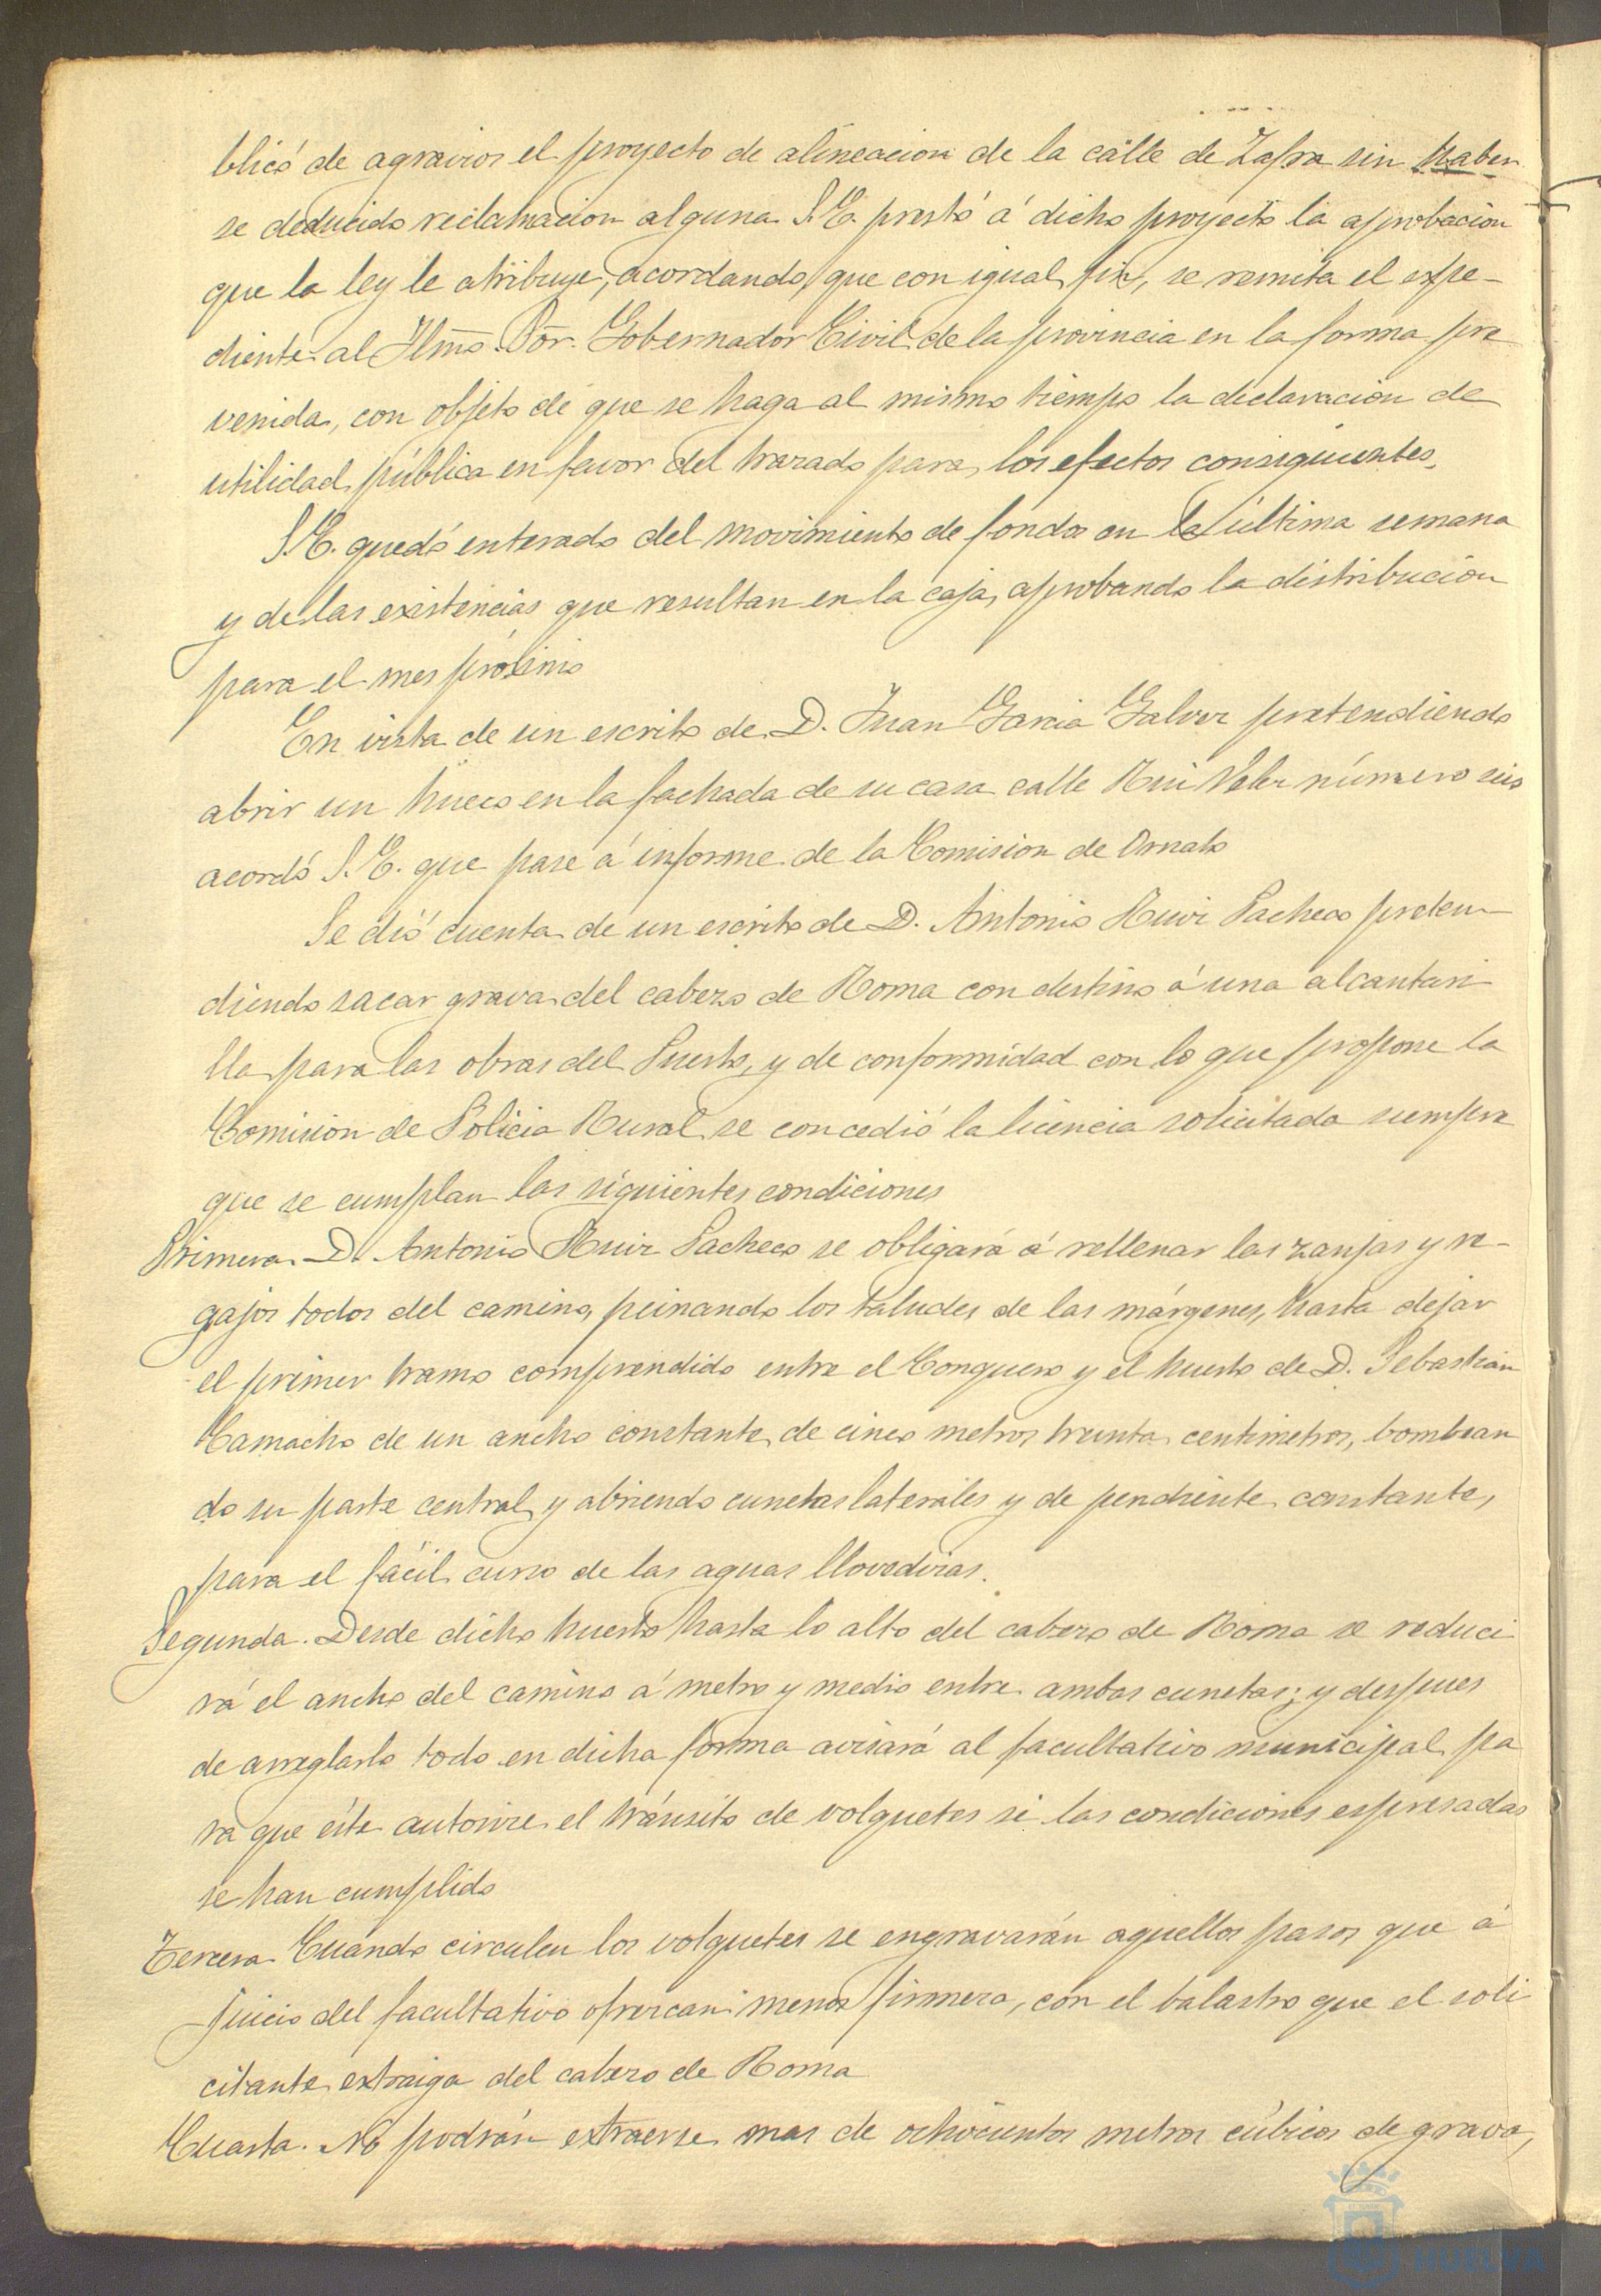 blicó de agravios el proyecto de alineacion de la calle de Zafra sin haber
se deducido reclamacion alguna S.E. prestó á dicho proyecto la aprobacion
que la ley le atribuye, acordando, que con igual fin, se remita el expe-
diente al Ilmo. Sor. Gobernador Civil de la provincia en la forma pre
venida, con objeto de que se haga al mismo tiempo la declaracion de
utilidad pública en favor del trazado para los efectos consiguientes.
S.E. quedó enterado del movimiento de fondos en la última semana
y de las existencias que resultan en la caja, aprobando la distribucion
para el mes próximo
En vista de un escrito de D. Juan Garcia Galvez pretendiendo
abrir un hueco en la fachada de su casa calle Rui Velez número seis
acordó S.E. que pase á informe de la Comision de Ornato
Se dió cuenta de un escrito de D. Antonio Ruiz Pacheco preten-
diendo sacar grava del cabezo de Roma con destino á una alcantari
lla para las obras del Puerto, y de conformidad con lo que propone la
Comision de Policia Rural se concedió la licencia solicitada siempre
que se cumplan las siguientes condiciones
Primera. D. Antonio Ruiz Pacheco se obligará á rellenar las zanjas y re-
gajos todos del camino, peinando los taludes de las márgenes, hasta dejar
el primer tramo comprendido entre el Conquero y el huerto de D. Sebastian
Camacho de un ancho constante de cinco metros treinta centimetros, bombean
do su parte central y abriendo cunetas laterales y de pendiente constante,
para el fácil curso de las aguas llovedizas.
Segunda. Desde dicho huerto hasta lo alto del cabezo de Roma se reduci
rá el ancho del camino á metro y medio entre ambas cunetas; y despues
de arreglarlo todo en dicha forma avisará al facultativo municipal pa
ra que éste autorize el tránsito de volquetes si las condiciones espresadas
se han cumplido
Tercera. Cuando circulen los volquetes se engravarán aquellos pasos que á
juicio del facultativo ofrezcan menos firmeza, con el balastro que el soli
citante extraiga del cabezo de Roma
Cuarta. No podrán extraerse mas de ochocientos metros cúbicos de grava,
HUELVA